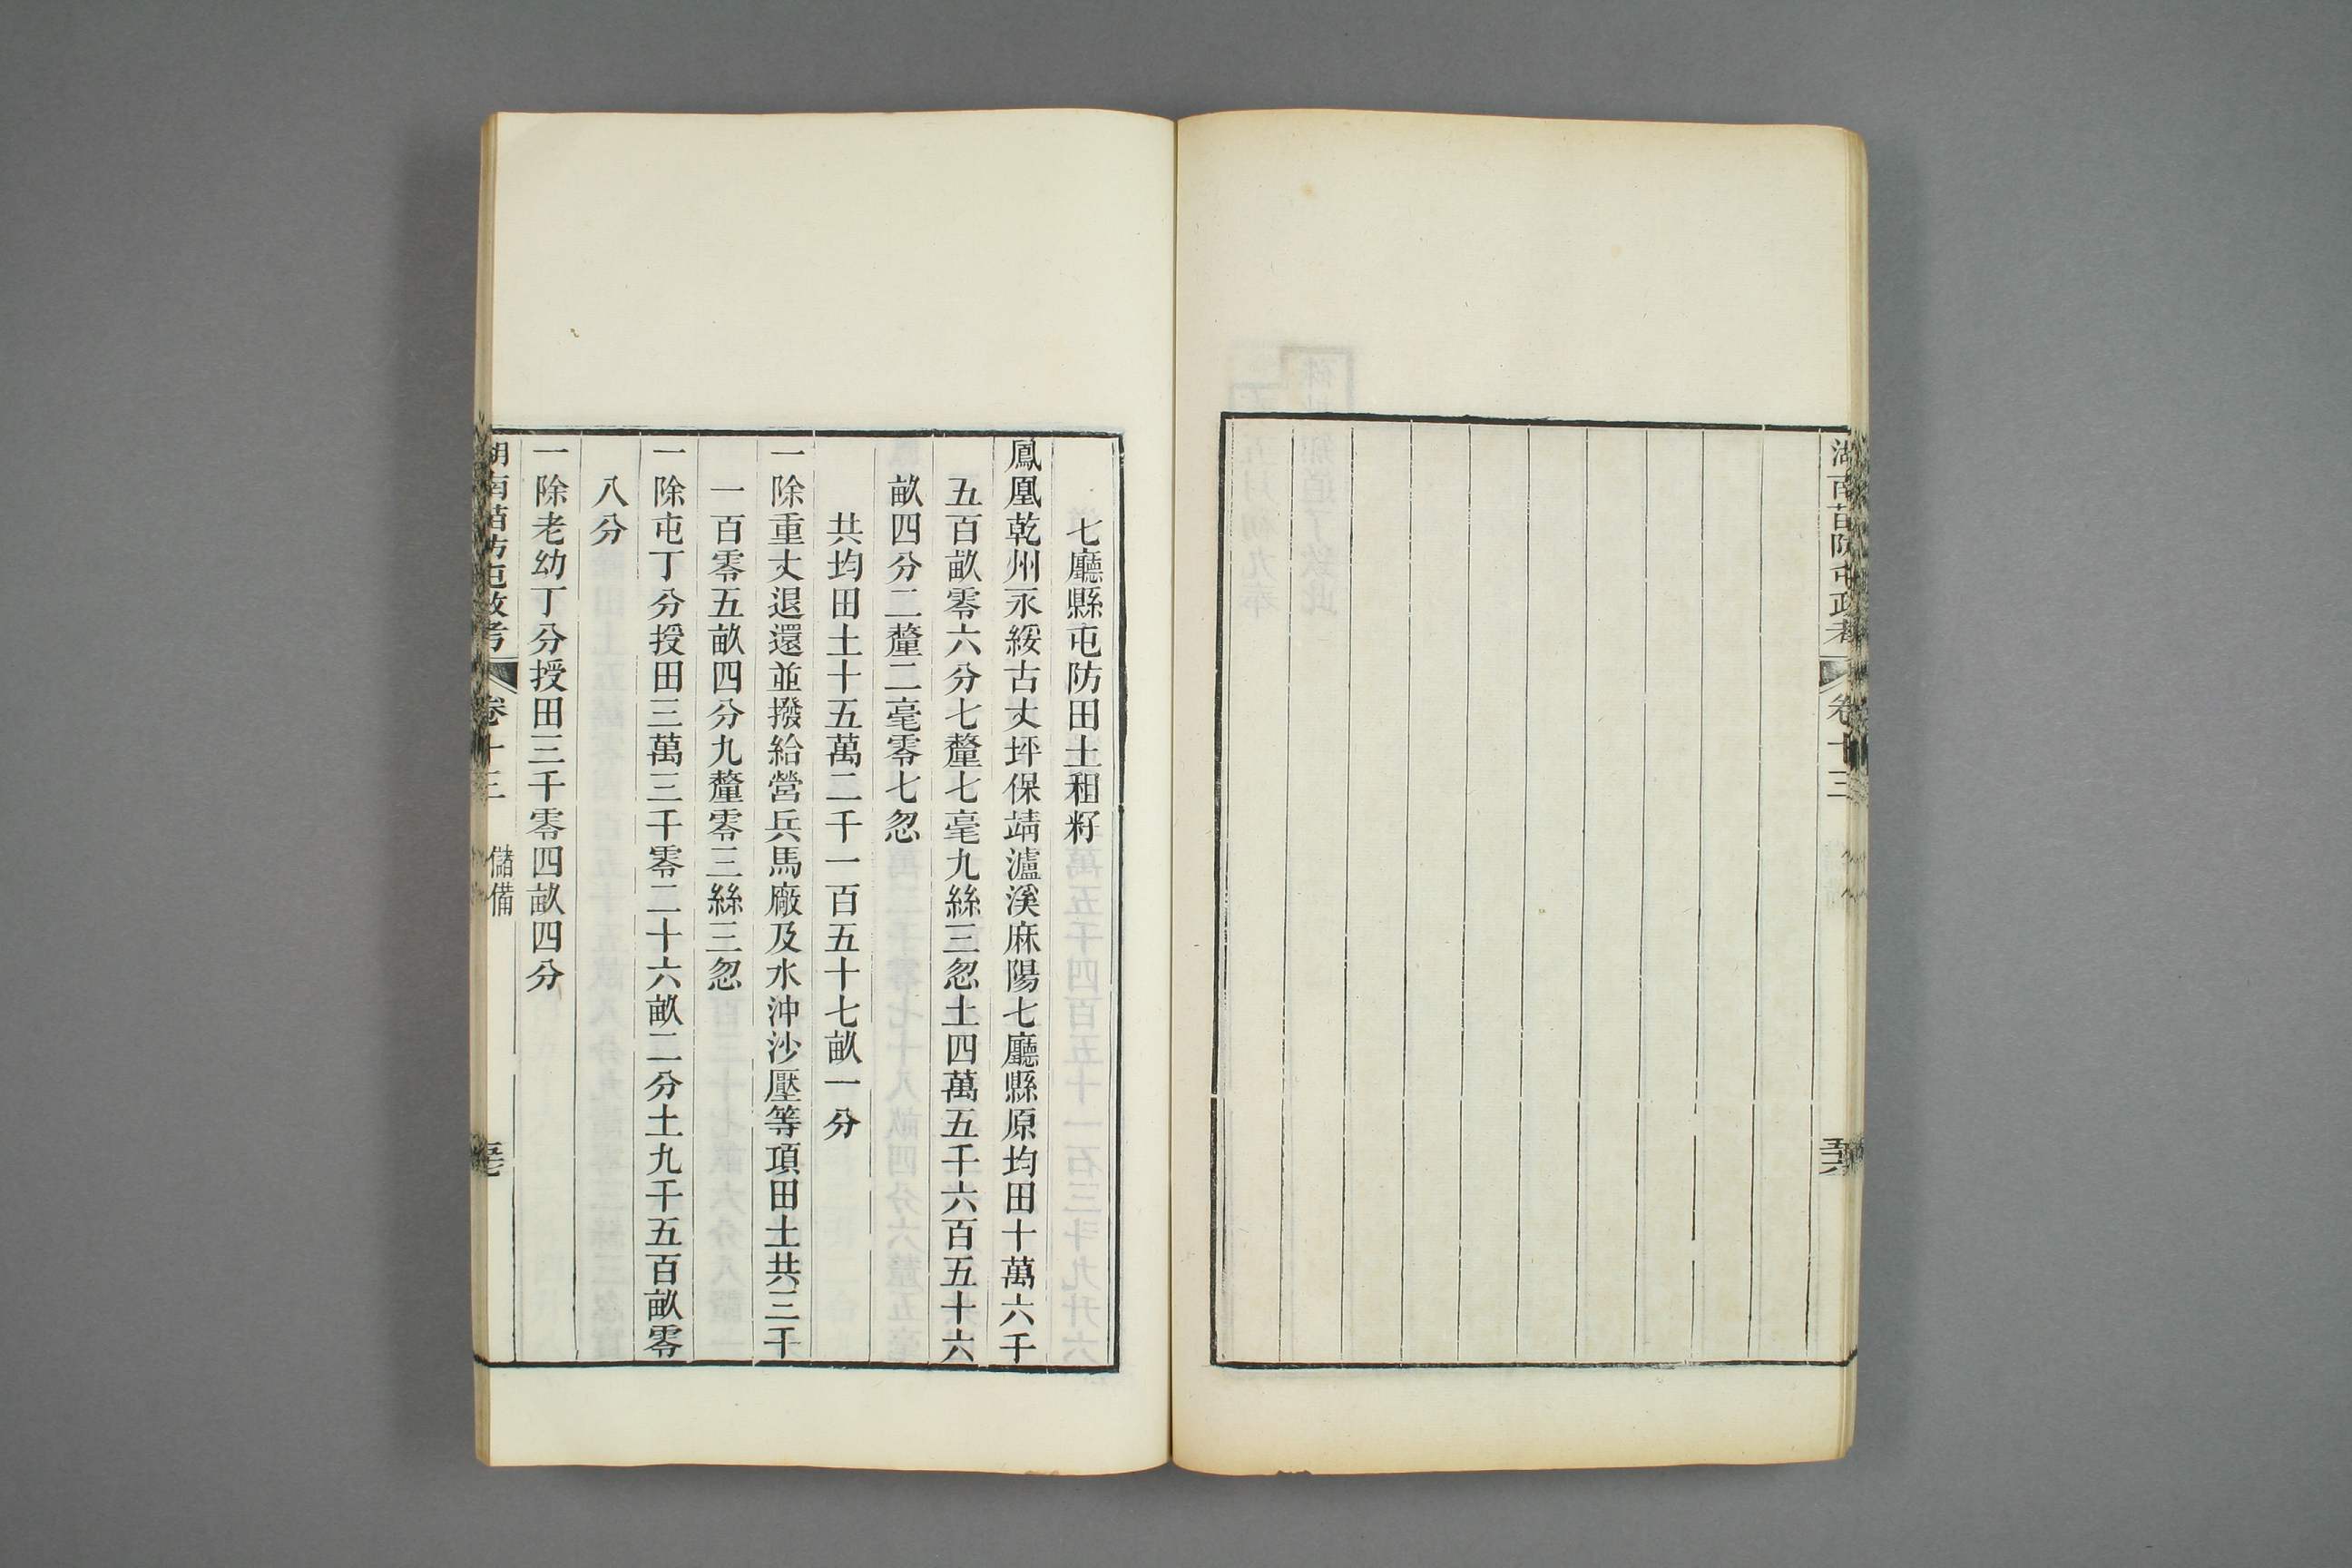 湖南苗防屯政考
卷十三
五六
七廳縣屯防田土租籽
鳳凰乾州永綏古丈坪保靖瀘溪麻陽七廳縣原均田十萬六千
五百畝零六分七釐七毫九絲三忽土四萬五千六百五十六
畝四分二釐二毫零七忽
共均田土十五萬二千一百五十七畝一分
一除重丈退還並撥給營兵馬廠及水沖沙壓等項田土共三千
一百零五畝四分九釐零三絲三忽
一除屯丁分授田三萬三千零二十六畝二分土九千五百畝零
八分
一除老幼丁分授田三千零四畝四分
湖南苗防屯政考
卷十三
儲備
五七